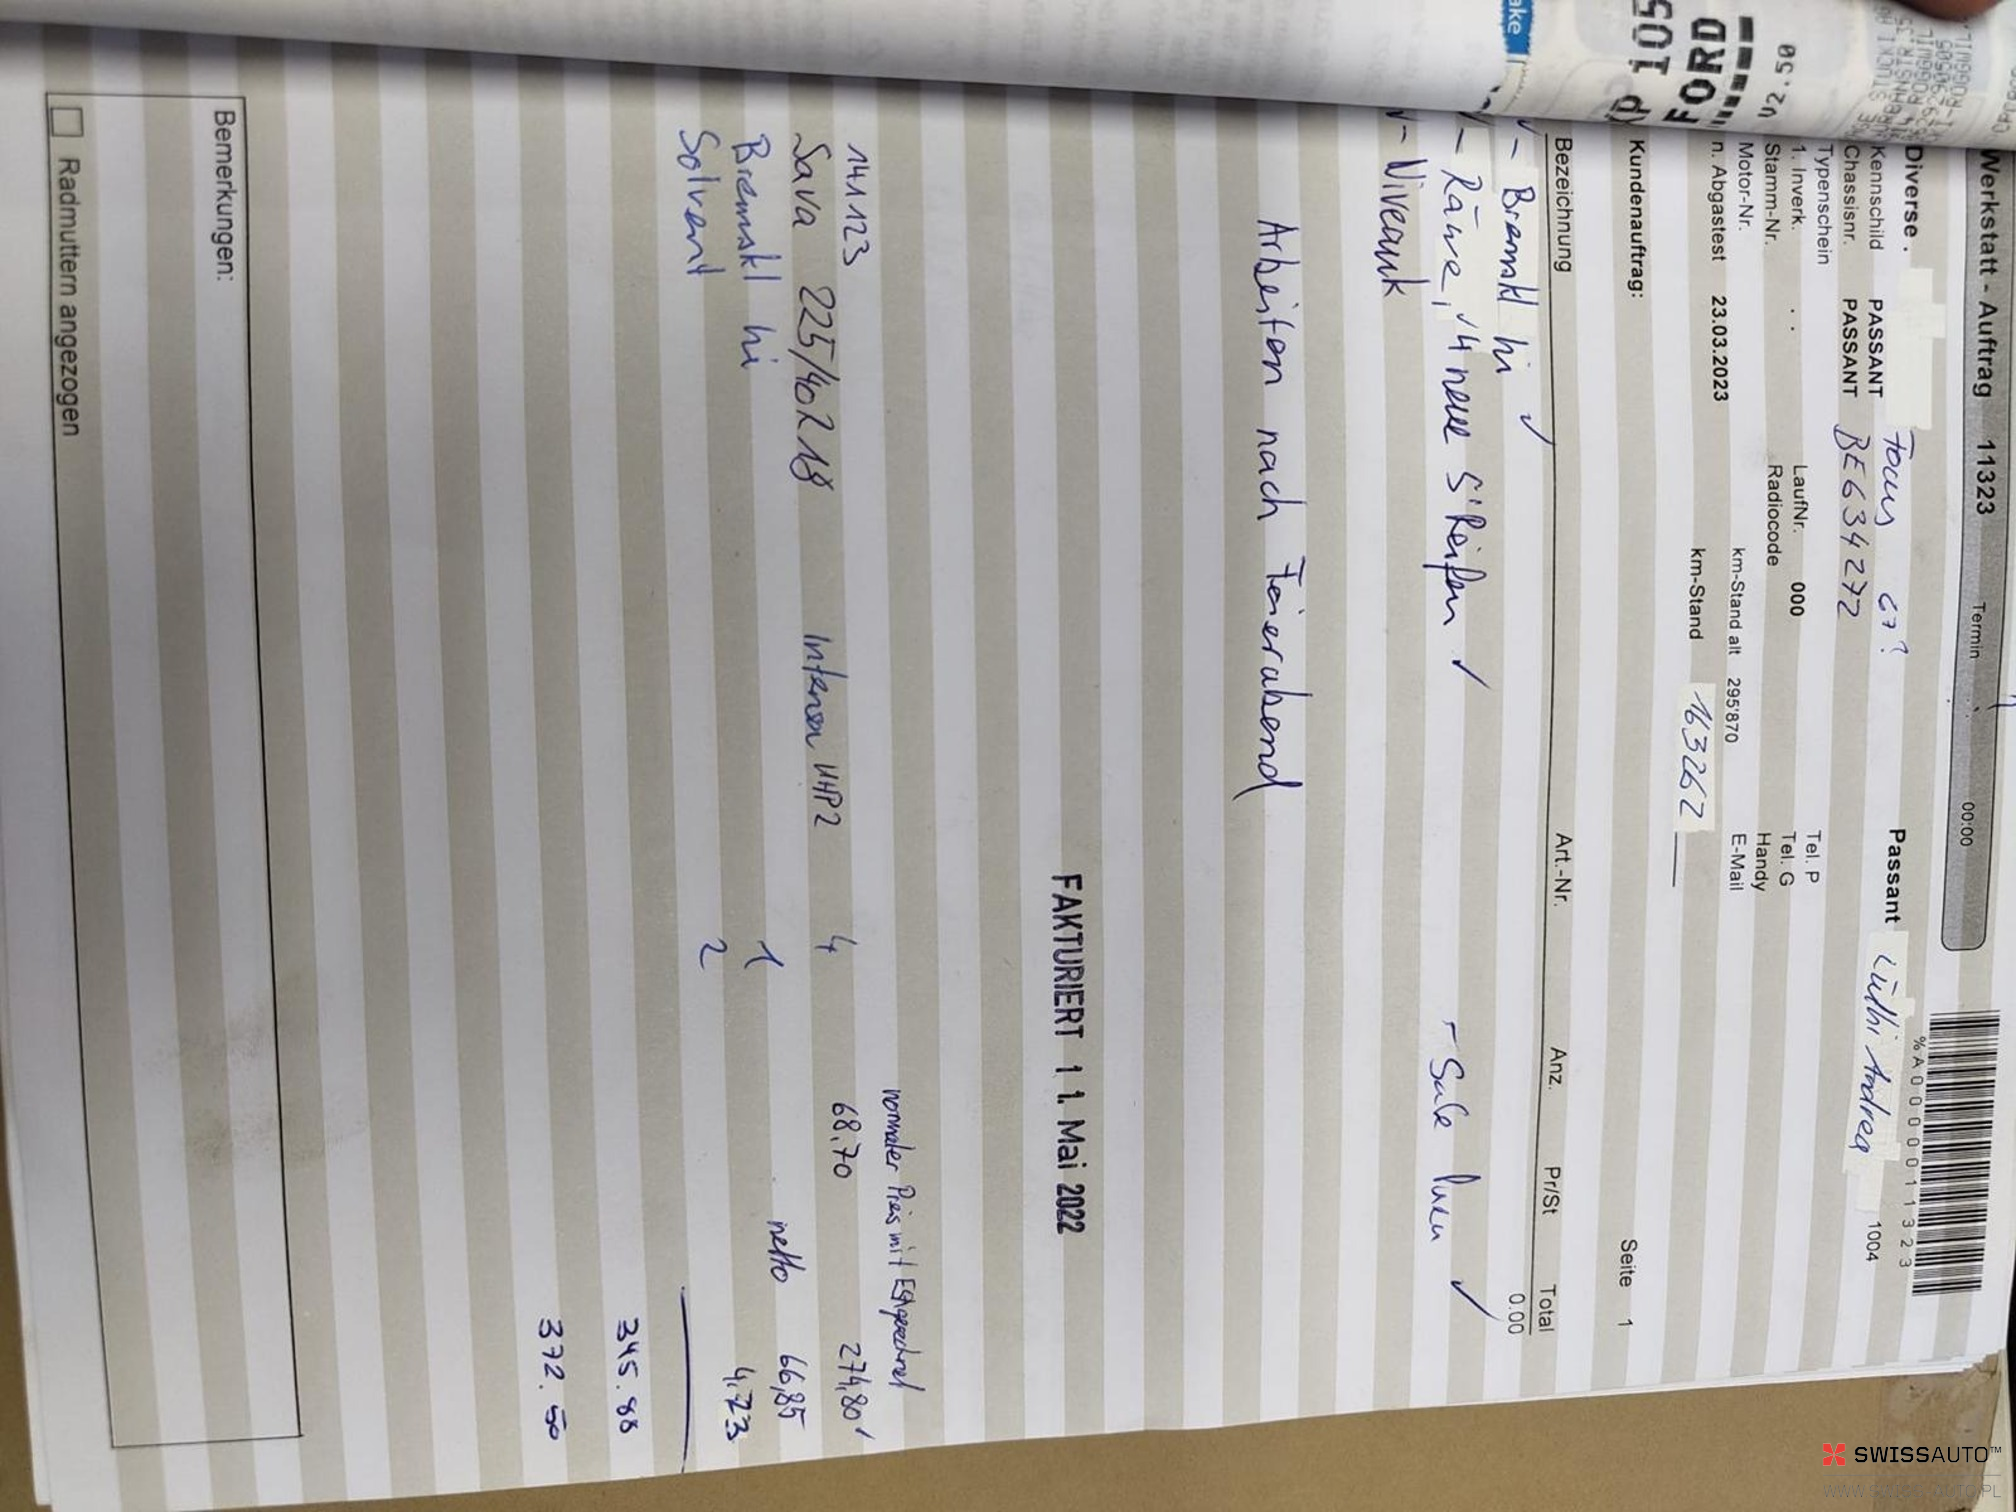 Werkstatt - Auftrag 11323 Termin 00:00
%A0000011323
Diverse .
Kennschild PASSANT Focus 67? Passant Lüthi Andrea 1004
Chassisnr. PASSANT BE634272
Typenschein Tel. P
1. Inverk. . . LaufNr. 000 Tel. G
Stamm-Nr. Radiocode Handy
Motor-Nr. km-Stand alt 295'870 E-Mail
n. Abgastest 23.03.2023 km-Stand 163262
Kundenauftrag: Seite 1
Bezeichnung Art.-Nr. Anz. Pr/St Total
0.00
- Bremskl hi ✓
- Räwe, 4 neue S'Reifen ✓ - ✓
- Niveauk
Arbeiten nach Feierabend
FAKTURIERT 1 1. Mai 2022
normaler Preis mit
141123
Sava 225/40Z18 Intensa UHP2 4 68,70 274,80 ✓
Bremskl hi 1 netto 66,85
Solvent 2 4.23
345.88
372.50
Bemerkungen:
Radmuttern angezogen
ake
FORD
V2.50
SWISSAUTO™
WWW.SWISSAUTO.PL